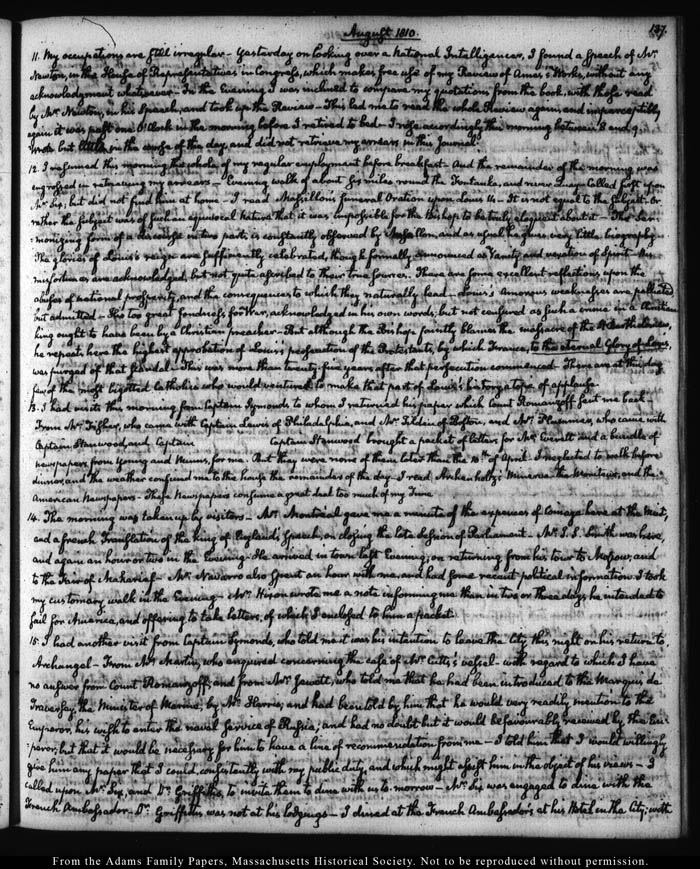 August 1810.
137.
11. My occupations are still irregular – Yesterday on looking over a National Intelligencer, I found a Speech of Mr.
Newton, in the House of Representatives in Congress, which makes free use of my Review of Ames's Works, without any
acknowledgment whatsoever – In the Evening I was inclined to compare my quotations from the book, with those read
by Mr. Newton, in his Speech, and took up the Review – This led me to read the whole Review again; and imperceptibly
again it was past one O'Clock in the morning before I retired to bed – I rose accordingly this morning between 8 and 9.
Wrote but little in the course of the day, and did not retrieve my arrears in this Journal.
12. I resumed this morning the whole of my regular employment before breakfast – And the remainder of the morning was
engrossed in retrieving my arrears – Evening walk of about six miles round the Fontanka, and never Quay. Called first upon
Mr. Six, but did not find him at home – I read Massillon's funeral Oration upon Louis 14 – It is not equal to the Subject. Or
rather the Subject was of such an equivocal Nature that it was impossible for the Bishop to be truly eloquent about it – The Ser-
-monizing form of a discourse in two parts, is constantly observed by Massillon, and as usual he gives very little biography –
The glories of Louis's reign are sufficiently celebrated, though formally announced as Vanity and vexation of Spirit – His
misfortunes are acknowledged, but not quite ascribed to their true Sources. There are some excellent reflections upon the
abuses of national prosperity, and the consequences to which they naturally lead – Louis's Amorous weaknesses are palliated
but admitted – His too great fondness for War, acknowledged in his own words, but not censured as such a crime in a Christian
king ought to have been by a Christian preacher – But although the Bishop faintly blames the massacre of the St. Bartholomew,
he repeats here the highest approbation of Louis's persecution of the Protestants, by which France, to the eternal Glory of Louis,
was purged of that Scandal – This was more than twenty-five years after that persecution commenced – There are at this day
few of the most bigotted Catholics who would venture to make that part of Louis's history a topic of applause.
13. I had visits this morning from Captain Symonds to whom I returned his paper which Count Romanzoff sent me back –
From Mr. Fisher, who came with Captain Lewis of Philadelphia, and Mr. Tilden of Boston, and Mr. Plummer, who came with
Captain Stanwood, and Captain Captain Stanwood brought a packet of letters for Mr. Everett and a bundle of
newspapers from Young and Minns, for me – But they were none of them later than the 10th of April. I neglected to walk before
dinner, and the weather confined me to the house the remainder of the day – I read Archenholtz's Minerva – the Moniteur, and the
American Newspapers – These Newspapers consume a great deal too much of my Time
14. The morning was taken up by visitors – Mr. Montréal gave me a minute of the expenses of carriage here at the Mint,
and a french Translation of the King of England's Speech, on closing the late Session of Parliament – Mr. J. S. Smith was here,
and again an hour or two in the Evening – He arrived in town last Evening, on returning from his tour to Moscow, and
to the Fair of Makarief – Mr. Navarro also spent an hour with me, and had some recent political information. I took
my customary walk in the Evening – Mr. Hixon wrote me a note informing me than in two or three days he intended to
sail for America, and offering to take letters, of which I enclosed to him a packet.
15. I had another visit from Captain Symonds, who told me it was his intention to leave the City this night on his return to,
Archangel – From Mr. Martin, who enquired concerning the case of Mr. Cutts's vessel – with regard to which I have
no answer from Count Romanzoff; and from Mr. Jewett, who told me that he had been introduced to the Marquis de
Traversay, the Minister of Marine, by Mr. Harris, and had been told by him that he would very readily mention to the
Emperor, his wish to enter the naval Service of Russia; and had no doubt but it would be favourably received by the Em-
-peror; but that it would be necessary for him to have a line of recommendation from me – I told him that I would willingly
give him any paper that I could, consistently with my public duty, and which might assist him in the object of his views – I
called upon Mr. Six, and Dr. Griffiths, to invite them to dine with us to-morrow – Mr. Six was engaged to dine with the
French Ambassador – Dr. Griffiths was not at his lodgings – I dined at the French Ambassador's at his Hotel in the City, with
From the Adams Family Papers, Massachusetts Historical Society. Not to be reproduced without permission.